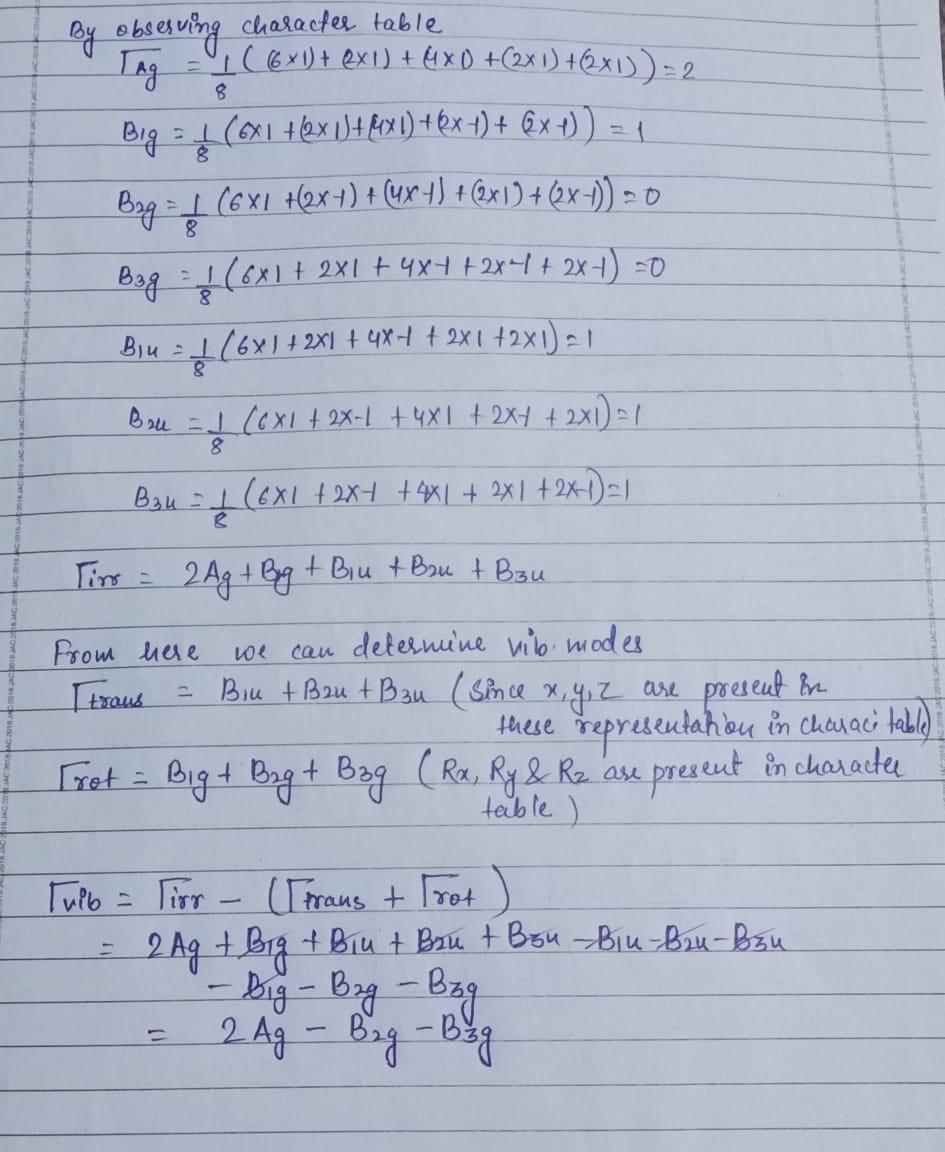 By observing character table
ΓAg = 1/8 ( (6×1) + (2×1) + (4×1) + (2×1) + (2×1)) = 2
B1g = 1/8 (6×1 + (2×1) + (4×1) + (2×-1) + (2×-1)) = 1
B2g = 1/8 (6×1 + (2×-1) + (4×-1) + (2×1) + (2×-1)) = 0
B3g = 1/8 (6×1 + 2×1 + 4×-1 + 2×-1 + 2×-1) = 0
B1u = 1/8 (6×1 + 2×1 + 4×-1 + 2×1 + 2×1) = 1
B2u = 1/8 (6×1 + 2×-1 + 4×1 + 2×-1 + 2×1) = 1
B3u = 1/8 (6×1 + 2×-1 + 4×1 + 2×1 + 2×-1) = 1
Γirr = 2Ag + B1g + B1u + B2u + B3u
From here we can determine vib. modes
Γtrans = B1u + B2u + B3u (Since x, y, z are present in
these representation in charac. table)
Γrot = B1g + B2g + B3g (Rx, Ry & Rz are present in character
table)
Γvib = Γirr - (Γtrans + Γrot)
= 2Ag + B1g + B1u + B2u + B3u - B1u - B2u - B3u
- B1g - B2g - B3g
= 2Ag - B2g - B3g